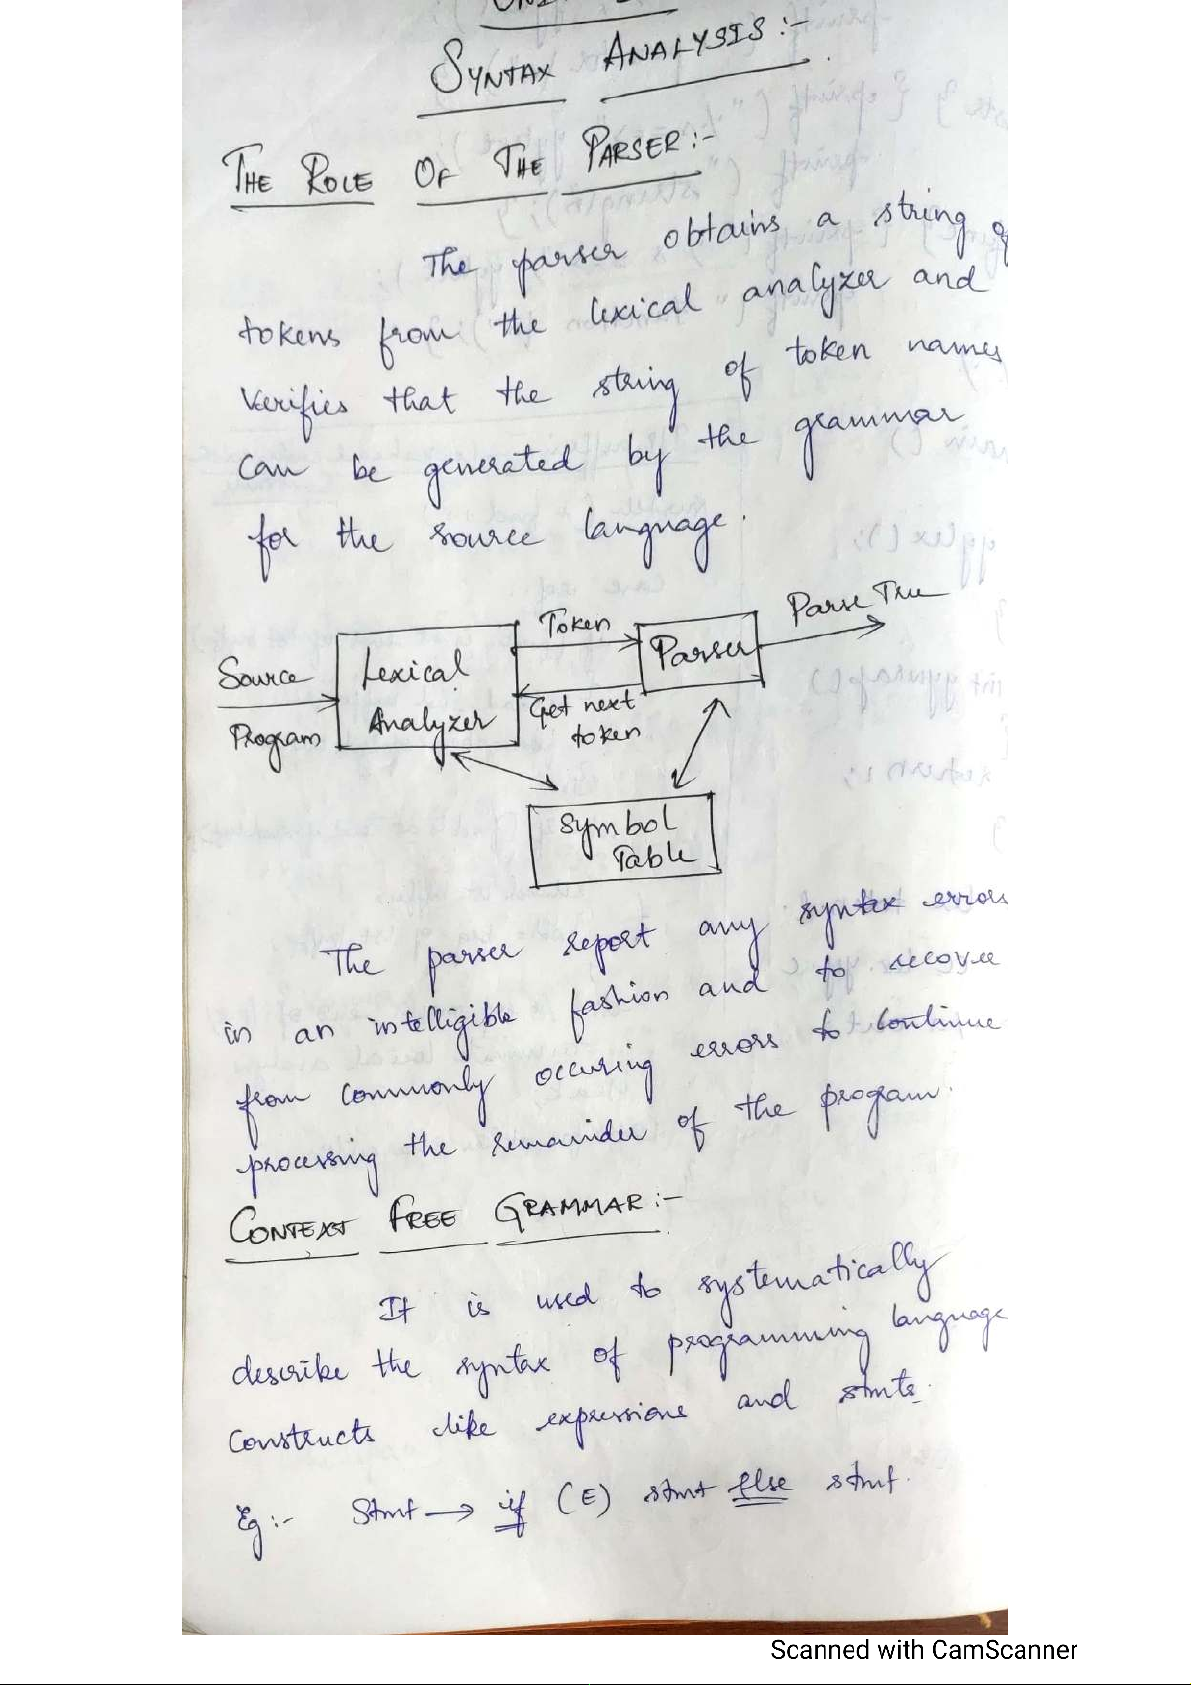 SYNTAX ANALYSIS :-
THE ROLE OF THE PARSER :-
The parser obtains a string of
tokens from the lexical analyzer and
verifies that the string of token names
can be generated by the grammar
for the source language.
Source
Program
Lexical
Analyzer
Token
Get next
token
Parser
Parse Tree
Symbol
Table
The parser report any syntax errors
in an intelligible fashion and to recover
from commonly occuring errors to continue
processing the remainder of the program.
CONTEXT FREE GRAMMAR :-
It is used to systematically
describe the syntax of programming language
constructs like expressions and stmts.
Eg :- Stmt → if (E) stmt else stmt.
Scanned with CamScanner